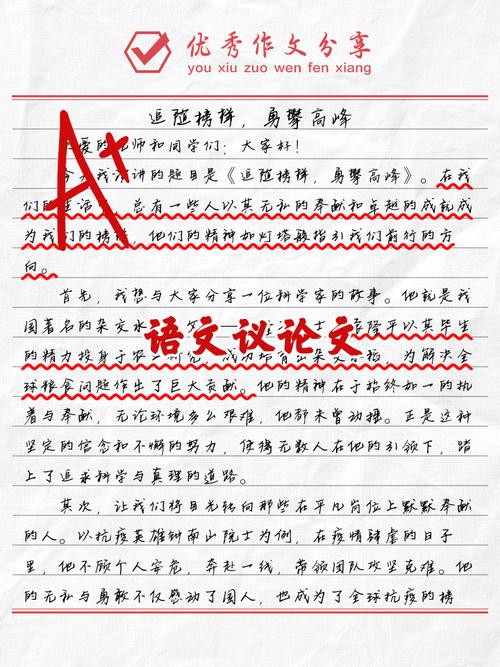 优秀作文分享
you xiu zuo wen fen xiang
追随榜样，勇攀高峰
A+
爱的 师和同学们：大家好！
今 我 讲的题目是《追随榜样，勇攀高峰》。在我
们的生活 ，总有一些人以其无私的奉献和卓越的成就成
为我们的榜样，他们的精神如灯塔般指引我们前行的方
向。
首先，我想与大家分享一位科学家的故事。他就是我
国著名的杂交水 士 隆平以其毕生
语文议论文
的精力投身于农 成功培育出杂交水稻，为解决全
球粮食问题作出了巨大贡献。他的精神在于始终如一的执
着与奉献，无论环境多么艰难，他都未曾动摇。正是这种
坚定的信念和不懈的努力，使得无数人在他的引领下，踏
上了追求科学与真理的道路。
其次，让我们将目光转向那些在平凡岗位上默默奉献
的人。以抗疫英雄钟南山院士为例，在疫情肆虐的日子
里，他不顾个人安危，奔赴一线，带领团队攻坚克难。他
的无私与勇敢不仅感动了国人，也成为了全球抗疫的榜